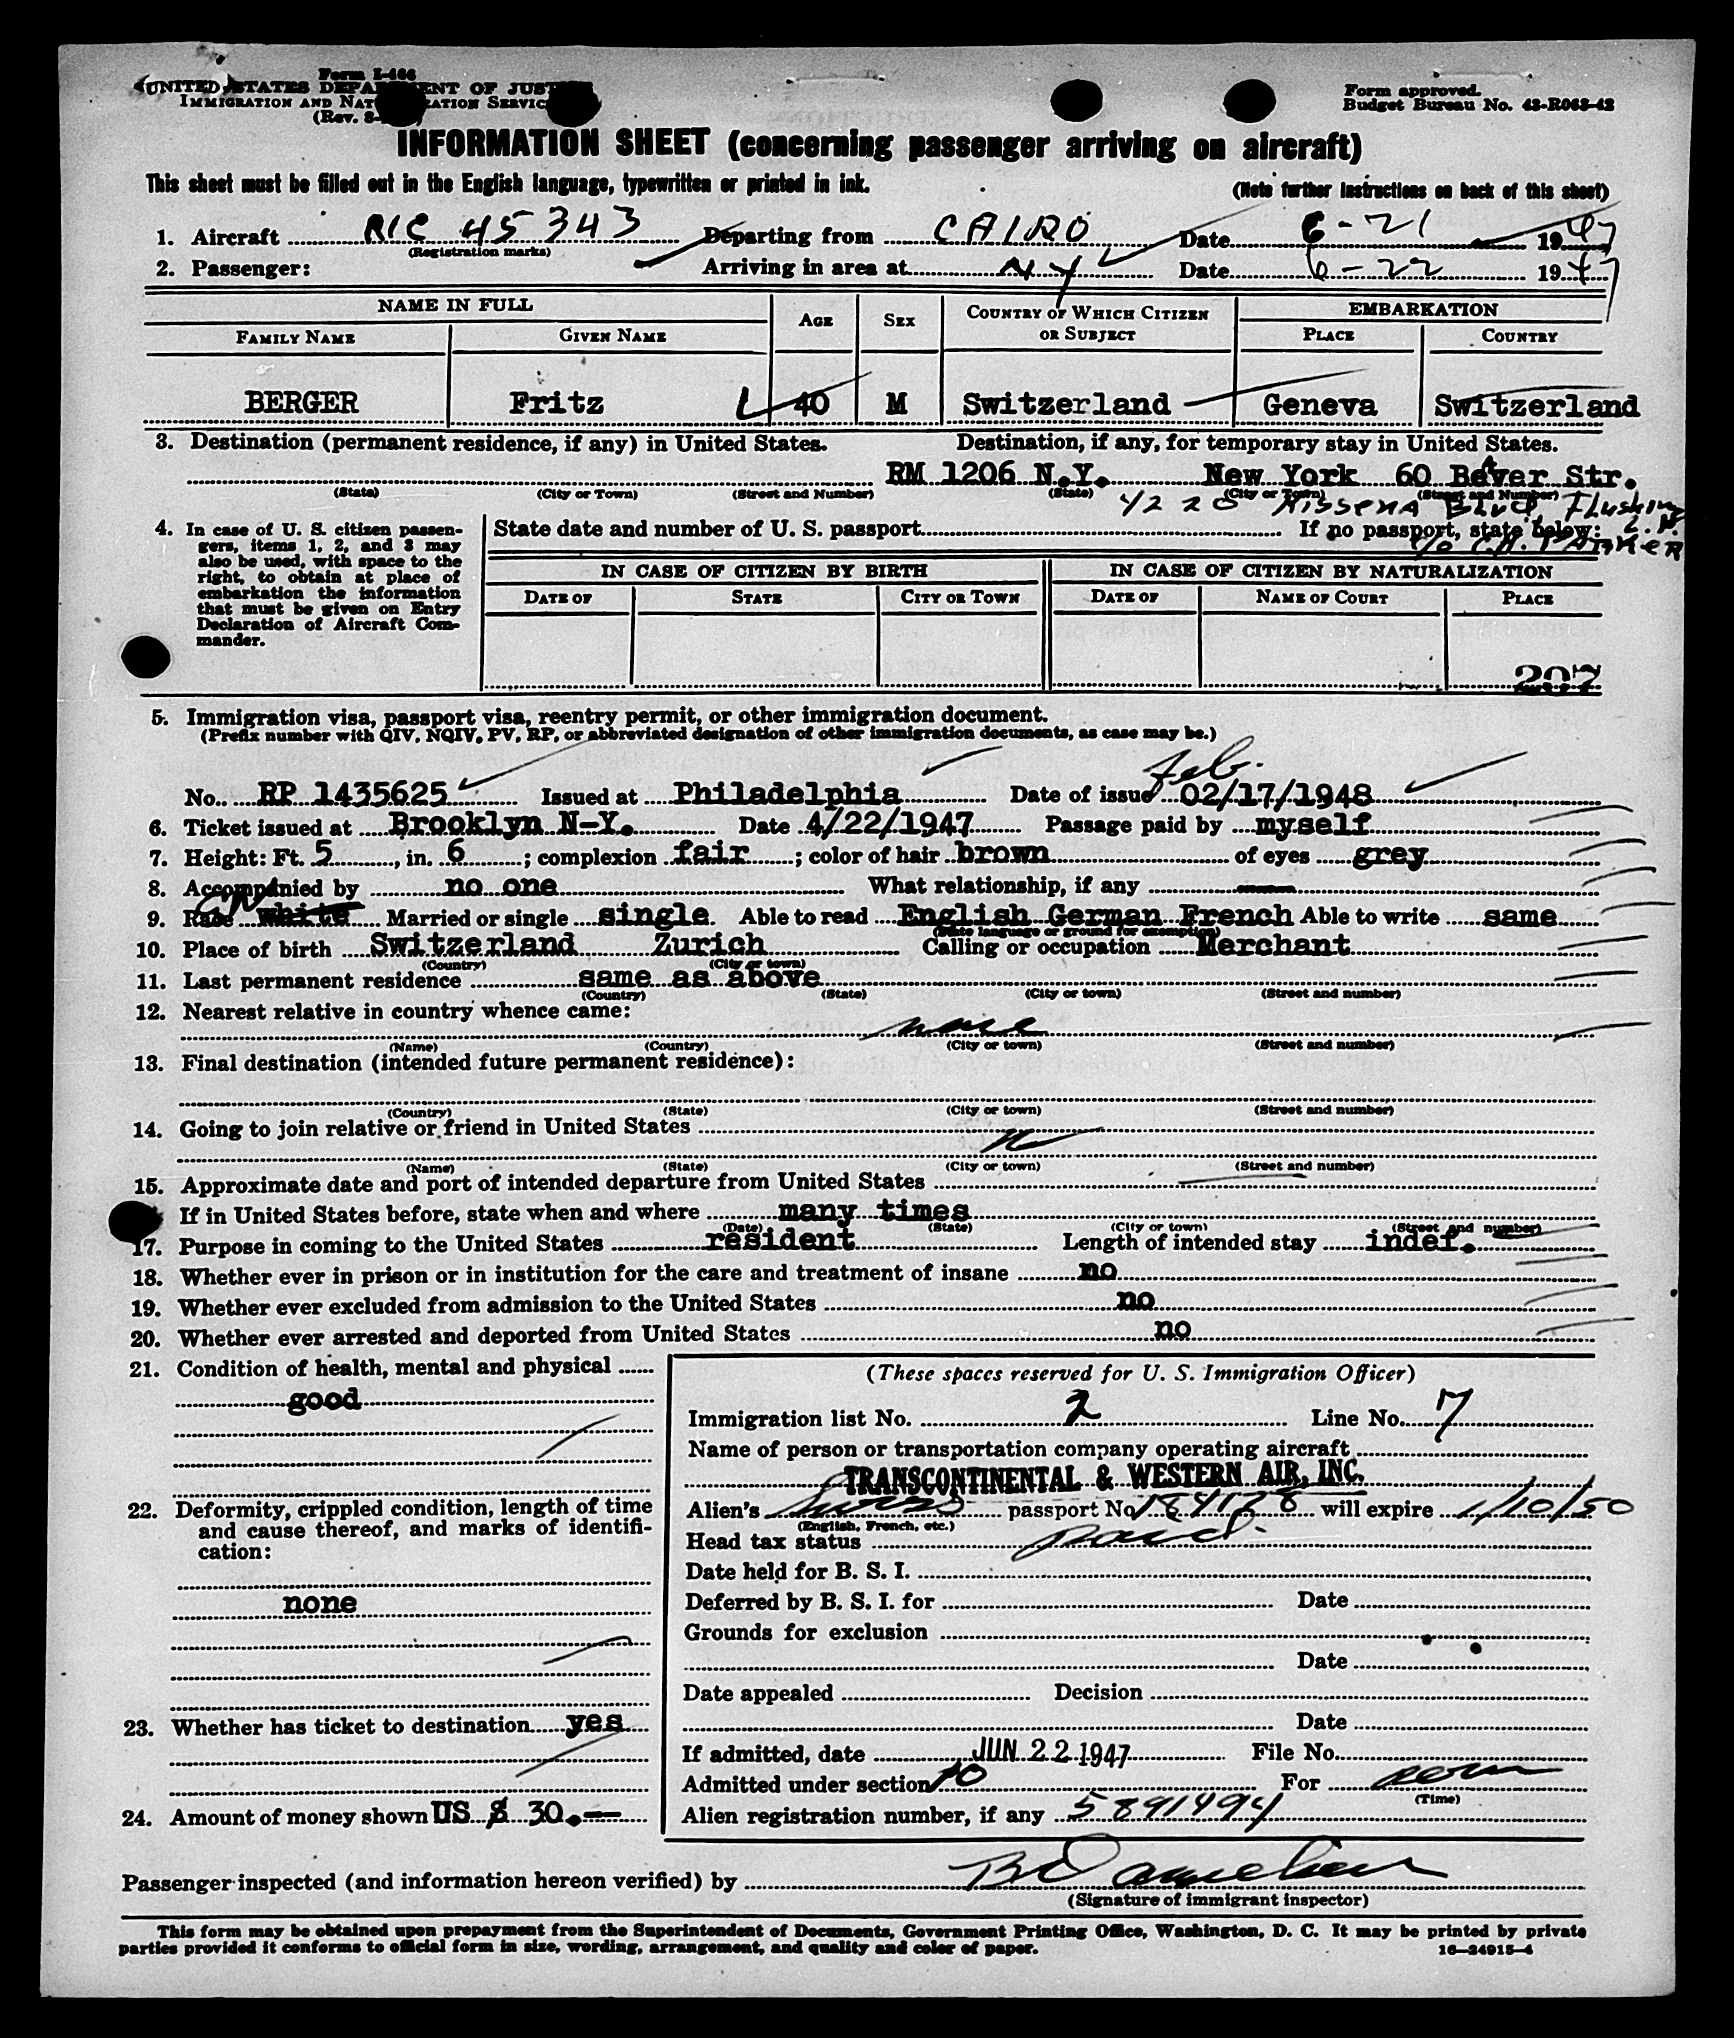 Form I-466
UNITED STATES DEPARTMENT OF JUSTICE
IMMIGRATION AND NATURALIZATION SERVICE
(Rev. 8-
Form approved.
Budget Bureau No. 43-R063-42
INFORMATION SHEET (concerning passenger arriving on aircraft)
This sheet must be filled out in the English language, typewritten or printed in ink.
(Note further instructions on back of this sheet)
1. Aircraft NC 45343 Departing from CAIRO Date 6-21 1947
(Registration marks)
2. Passenger: Arriving in area at NY Date 6-22 1947
NAME IN FULL AGE SEX COUNTRY OF WHICH CITIZEN OR SUBJECT EMBARKATION
FAMILY NAME GIVEN NAME PLACE COUNTRY
BERGER Fritz 40 M Switzerland Geneva Switzerland
3. Destination (permanent residence, if any) in United States. Destination, if any, for temporary stay in United States.
RM 1206 N.Y. New York 60 Beaver Str.
(State) (City or Town) (Street and Number) (State) (City or Town) (Street and Number)
42 20 Kissena Blvd, Flushing L.I.
4. In case of U. S. citizen passengers, items 1, 2, and 3 may also be used, with space to the right, to obtain at place of embarkation the information that must be given on Entry Declaration of Aircraft Commander.
State date and number of U. S. passport If no passport, state below:
c/o C.A.
IN CASE OF CITIZEN BY BIRTH IN CASE OF CITIZEN BY NATURALIZATION
DATE OF STATE CITY OR TOWN DATE OF NAME OF COURT PLACE
207
5. Immigration visa, passport visa, reentry permit, or other immigration document.
(Prefix number with QIV, NQIV, PV, RP, or abbreviated designation of other immigration documents, as case may be.)
Feb.
No. RP 1435625 Issued at Philadelphia Date of issue 02/17/1948
6. Ticket issued at Brooklyn N-Y. Date 4/22/1947 Passage paid by myself
7. Height: Ft. 5, in. 6; complexion fair; color of hair brown of eyes grey
8. Accompanied by no one What relationship, if any
9. Race white Married or single single Able to read English German French Able to write same
(State language or ground for exemption)
10. Place of birth Switzerland Zurich Calling or occupation Merchant
(Country) (City or town)
11. Last permanent residence same as above
(Country) (State) (City or town) (Street and number)
12. Nearest relative in country whence came:
none
(Name) (Country) (City or town) (Street and number)
13. Final destination (intended future permanent residence):
(Country) (State) (City or town) (Street and number)
14. Going to join relative or friend in United States
no
(Name) (State) (City or town) (Street and number)
15. Approximate date and port of intended departure from United States
If in United States before, state when and where many times
(Date) (State) (City or town) (Street and number)
17. Purpose in coming to the United States resident Length of intended stay indef.
18. Whether ever in prison or in institution for the care and treatment of insane no
19. Whether ever excluded from admission to the United States no
20. Whether ever arrested and deported from United States no
21. Condition of health, mental and physical
good
22. Deformity, crippled condition, length of time and cause thereof, and marks of identification:
none
23. Whether has ticket to destination yes
24. Amount of money shown US $ 30.—
(These spaces reserved for U. S. Immigration Officer)
Immigration list No. 2 Line No. 7
Name of person or transportation company operating aircraft
TRANSCONTINENTAL & WESTERN AIR, INC.
Alien's Swiss passport No. 184128 will expire 1/10/50
(English, French, etc.)
Head tax status paid.
Date held for B. S. I.
Deferred by B. S. I. for Date
Grounds for exclusion
Date
Date appealed Decision
Date
If admitted, date JUN 22 1947 File No.
Admitted under section 10 For perm
(Time)
Alien registration number, if any 5891494
Passenger inspected (and information hereon verified) by
(Signature of immigrant inspector)
This form may be obtained upon prepayment from the Superintendent of Documents, Government Printing Office, Washington, D. C. It may be printed by private
parties provided it conforms to official form in size, wording, arrangement, and quality and color of paper.
16—24915-4